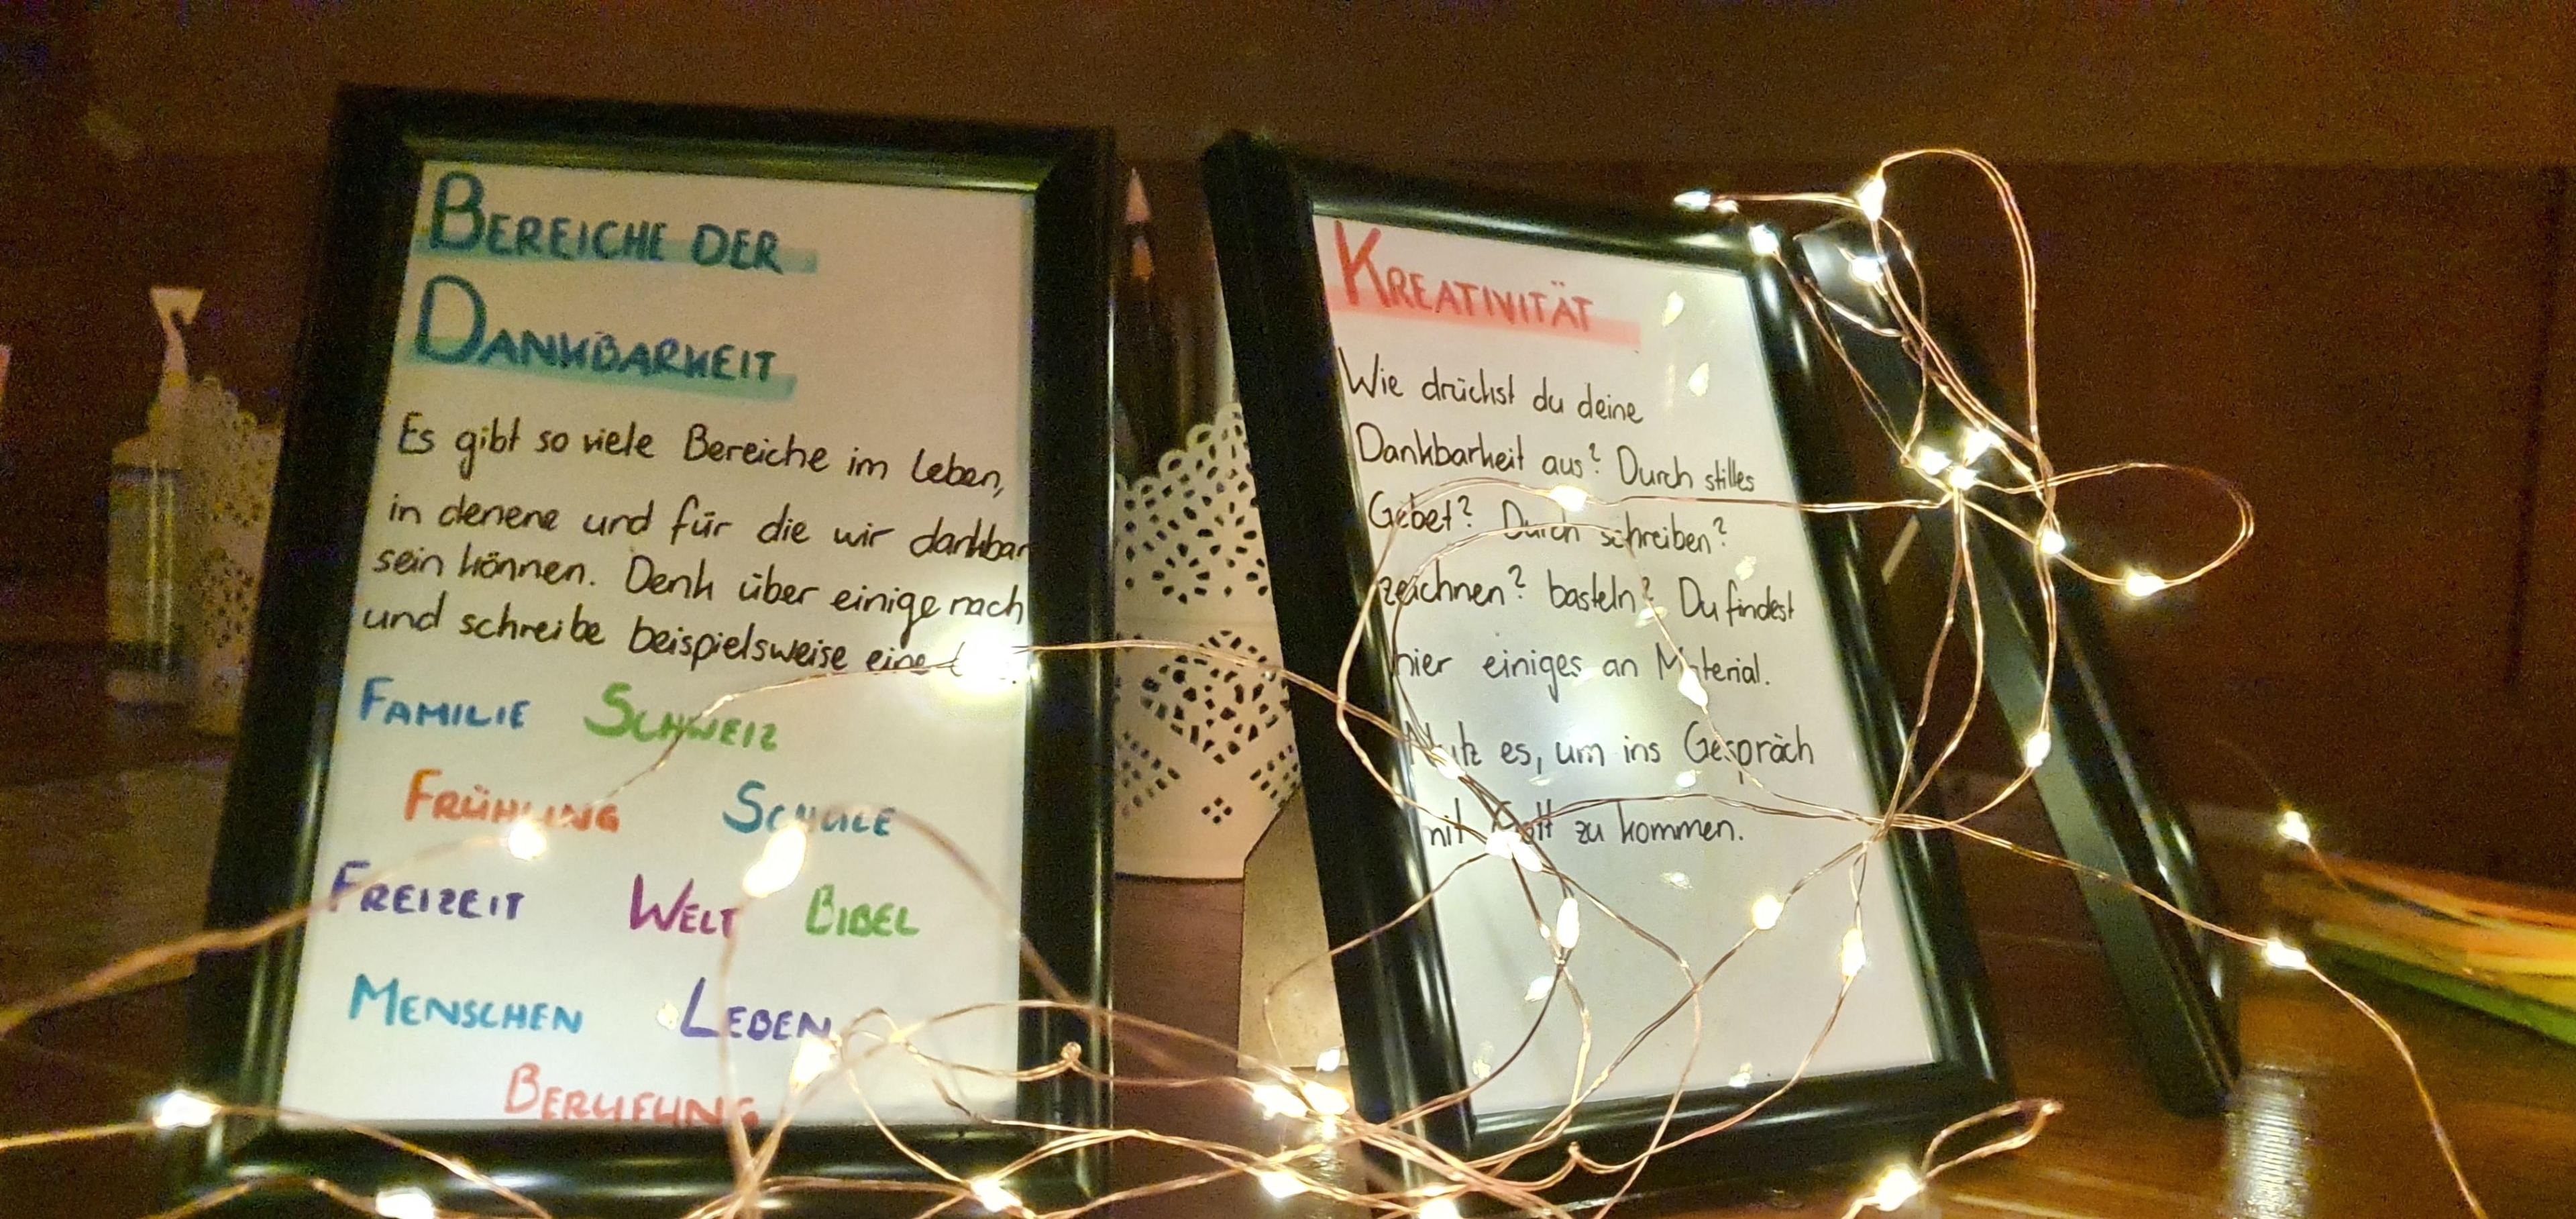 BEREICHE DER
DANKBARKEIT
Es gibt so viele Bereiche im Leben,
in denene und für die wir dankbar
sein können. Denk über einige nach
und schreibe beispielsweise eine
FAMILIE SCHWEIZ
FRÜHLING SCHULE
FREIZEIT WELT BIBEL
MENSCHEN LEBEN
BERUFUNG
KREATIVITÄT
Wie drückst du deine
Dankbarkeit aus? Durch stilles
Gebet? Durch schreiben?
zeichnen? basteln? Du findest
hier einiges an Material.
Nutz es, um ins Gespräch
mit Gott zu kommen.